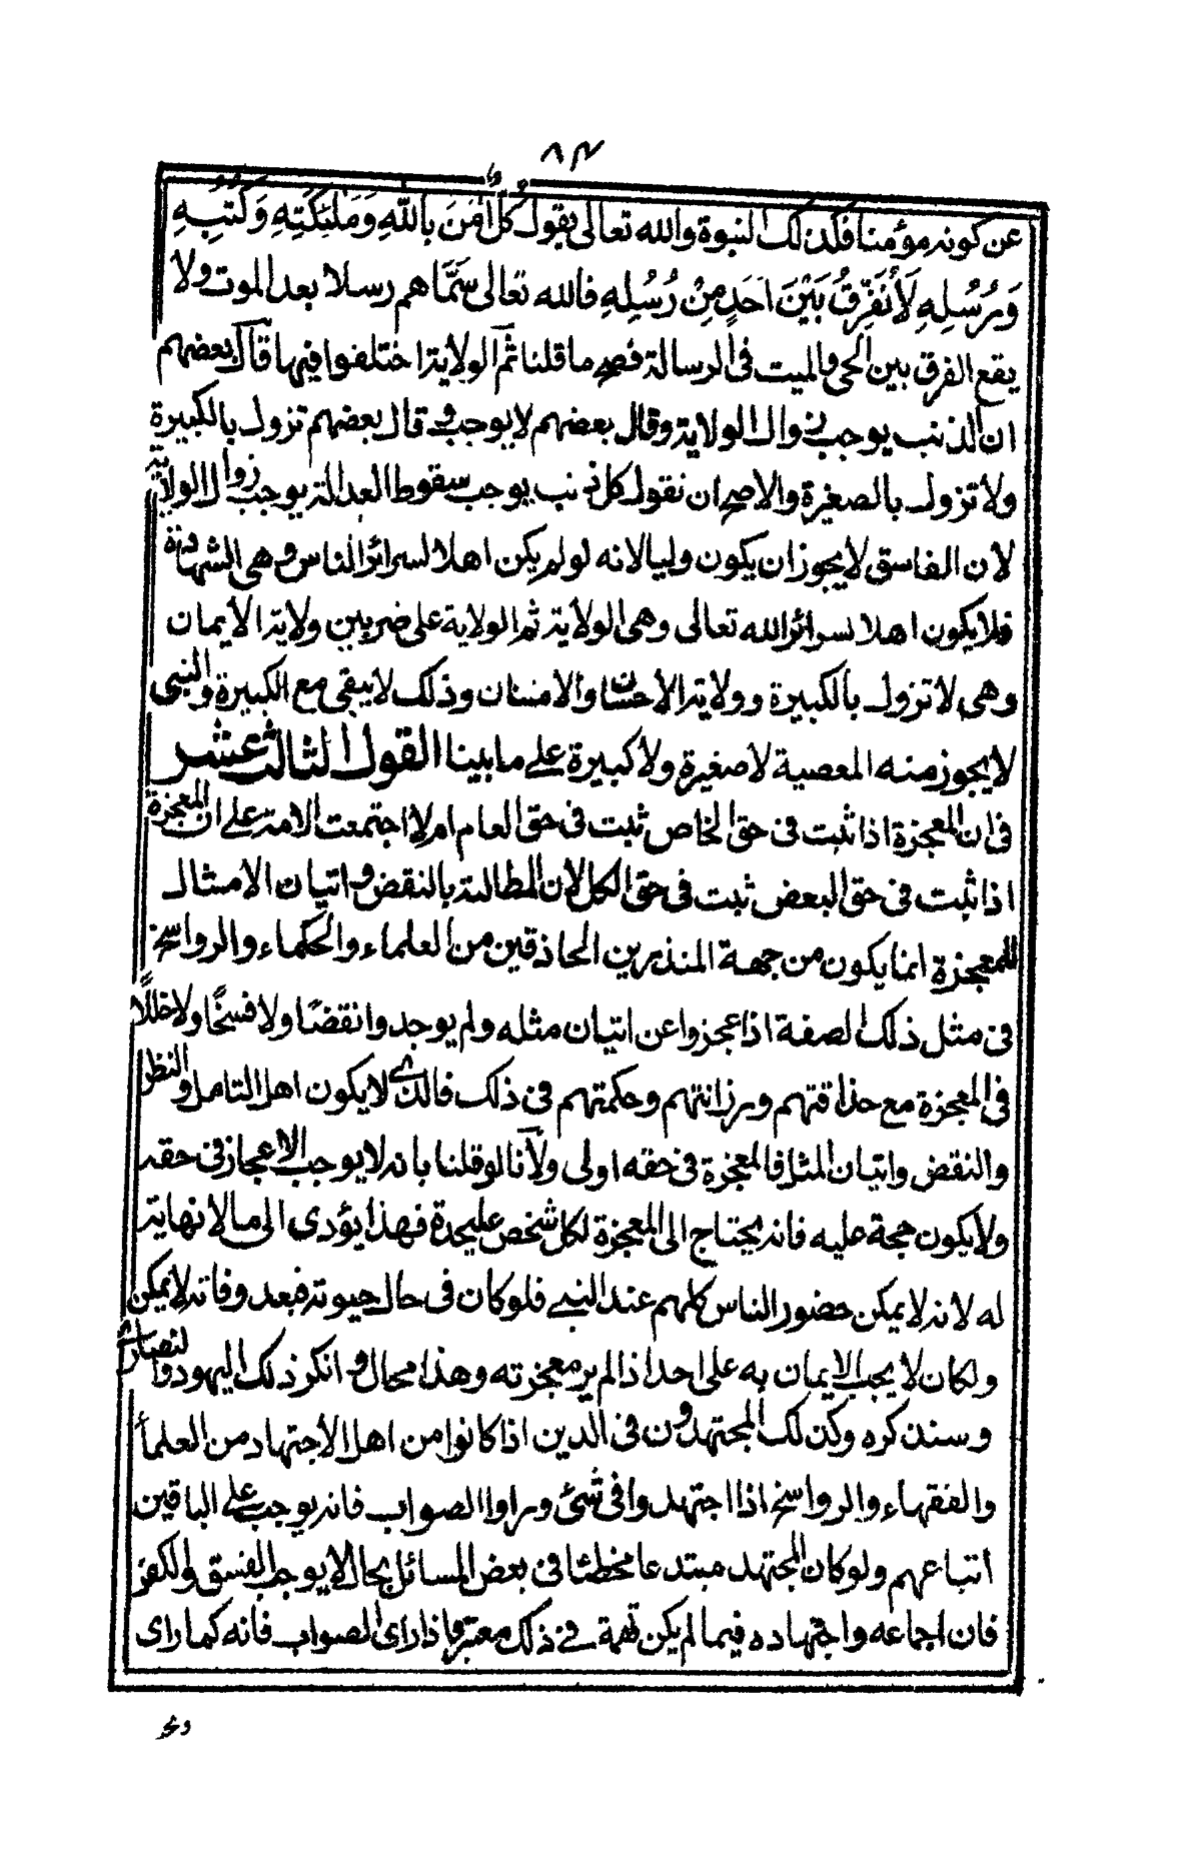 ٨٣
عن كونه مؤمنا فكذلك النبوة والله تعالى يقول كُلٌّ اٰمَنَ بِاللّٰهِ وَمَلٰئِكَتِهِ وَكُتُبِهِ
وَرُسُلِهِ لَانُفَرِّقُ بَيْنَ اَحَدٍ مِنْ رُسُلِهِ فالله تعالى سَمَّاهم رسلا بعد الموت ولا
يقع الفرق بين الحى والميت فى الرسالة فصح ما قلنا ثم الولاية اختلفوا فيها قال بعضهم
ان الذنب يوجب زوال الولاية وقال بعضهم لا يوجب وقال بعضهم تزول بالكبيرة
ولا تزول بالصغيرة والاصح ان نقول كل ذنب يوجب سقوط العدالة يوجب زوال الولاية
لان الفاسق لا يجوز ان يكون وليا لانه لو لم يكن اهلا لسرائر الناس وهى الشهادة
فلا يكون اهلا لسرائر الله تعالى وهى الولاية ثم الولاية على ضربين ولاية الايمان
وهى لا تزول بالكبيرة وولاية الاحسان والامتنان وذلك لا يبقى مع الكبيرة والنبى
لا يجوز منه المعصية لا صغيرة ولا كبيرة على ما بينا القول الثالث عشر
فى ان المعجزة اذا ثبت فى حق الخاص ثبت فى حق العام ام لا اجتمعت الامة على ان المعجزة
اذا ثبت فى حق البعض ثبت فى حق الكل لان المطالبة بالنقض واتيان الامثال
للمعجزة انما يكون من جهة المنذرين الحاذقين من العلماء والحكماء والرواسخ
فى مثل ذلك الصفة اذا عجزوا عن اتيان مثله ولم يوجدوا نقضًا ولا فسخًا ولا خللًا
فى المعجزة مع حذاقتهم ورزانتهم وحكمتهم فى ذلك فالذى لا يكون اهل التامل والنظر
والنقض واتيان المثل فالمعجزة فى حقه اولى ولانا لو قلنا بانه لا يوجب الاعجاز فى حقه
ولا يكون حجة عليه فانه يحتاج الى المعجزة لكل شخص عليحدة فهذا يؤدى الى مالا نهاية
له لانه لا يمكن حضور الناس كلهم عند النبى فلو كان فى حال حيوته فبعد وفاته لا يمكن
ولكان لا يجب الايمان به على احد اذا لم ير معجزته وهذا محال وانكر ذلك اليهود والنصارى
وسنذكره وكذلك المجتهدون فى الدين اذا كانوا من اهل الاجتهاد من العلمأ
والفقهاء والرواسخ اذا اجتهدوا فى شئ وراوا الصواب فانه يوجب على الباقين
اتباعهم ولو كان المجتهد مبتدعا مخطئا فى بعض المسائل بحال لا يوجب الفسق والكفر
فان اجماعه واجتهاده فيما لم يكن تهمة فى ذلك معتبر واذا راى الصواب فانه كما راى